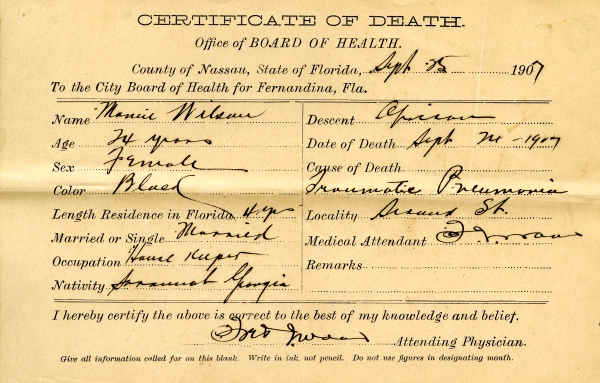 CERTIFICATE OF DEATH.
Office of BOARD OF HEALTH.
County of Nassau, State of Florida, Sept 25 1907
To the City Board of Health for Fernandina, Fla.
Name Mamie Wilson
Age 24 years
Sex Female
Color Black
Length Residence in Florida 4 yrs
Married or Single Married
Occupation House Keeper
Nativity Savannah Georgia
Descent African
Date of Death Sept 24 - 1907
Cause of Death
Traumatic Pneumonia
Locality Second St.
Medical Attendant
Remarks
I hereby certify the above is correct to the best of my knowledge and belief.
Attending Physician.
Give all information called for on this blank. Write in ink, not pencil. Do not use figures in designating month.